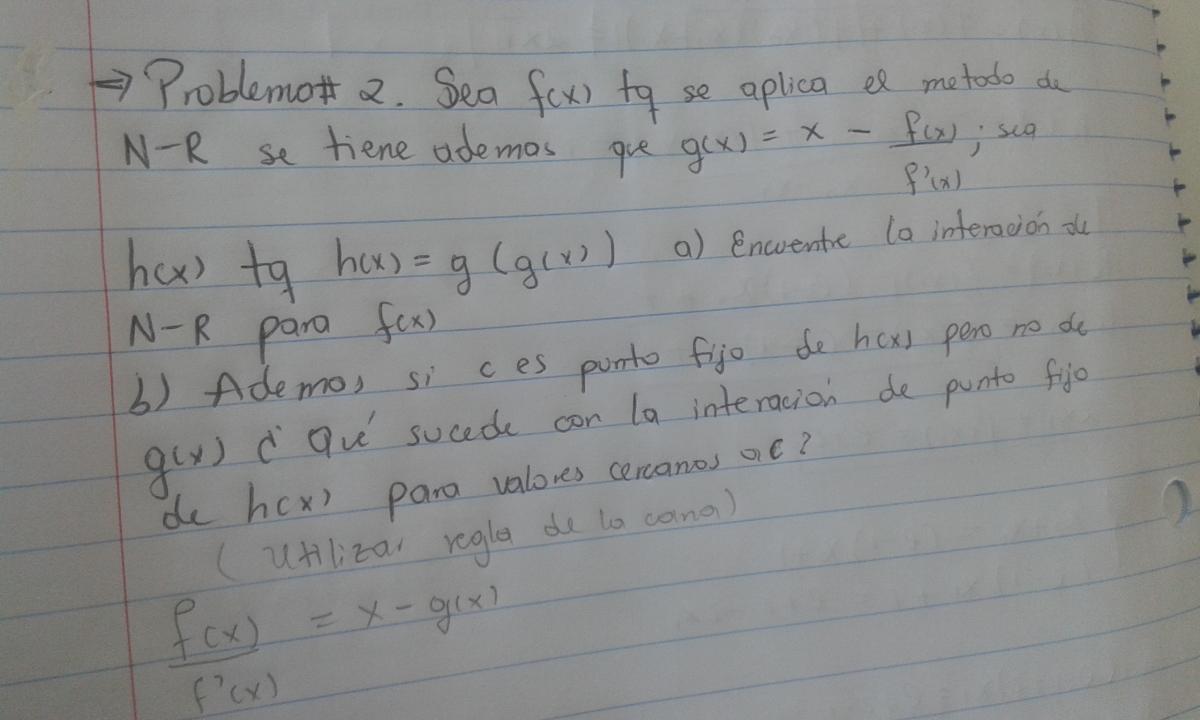 ⇒ Problema # 2. Sea f(x) tq se aplica el metodo de
N-R se tiene ademas que g(x) = x - f(x)/f'(x) ; sea
h(x) tq h(x) = g(g(x)) a) Encuente la interación de
N-R para f(x)
b) Ademas si c es punto fijo de h(x) pero no de
g(x) ¿ Qué sucede con la interación de punto fijo
de h(x) para valores cercanos a c ?
( Utilizar regla de la cana)
f(x)/f'(x) = x - g(x)